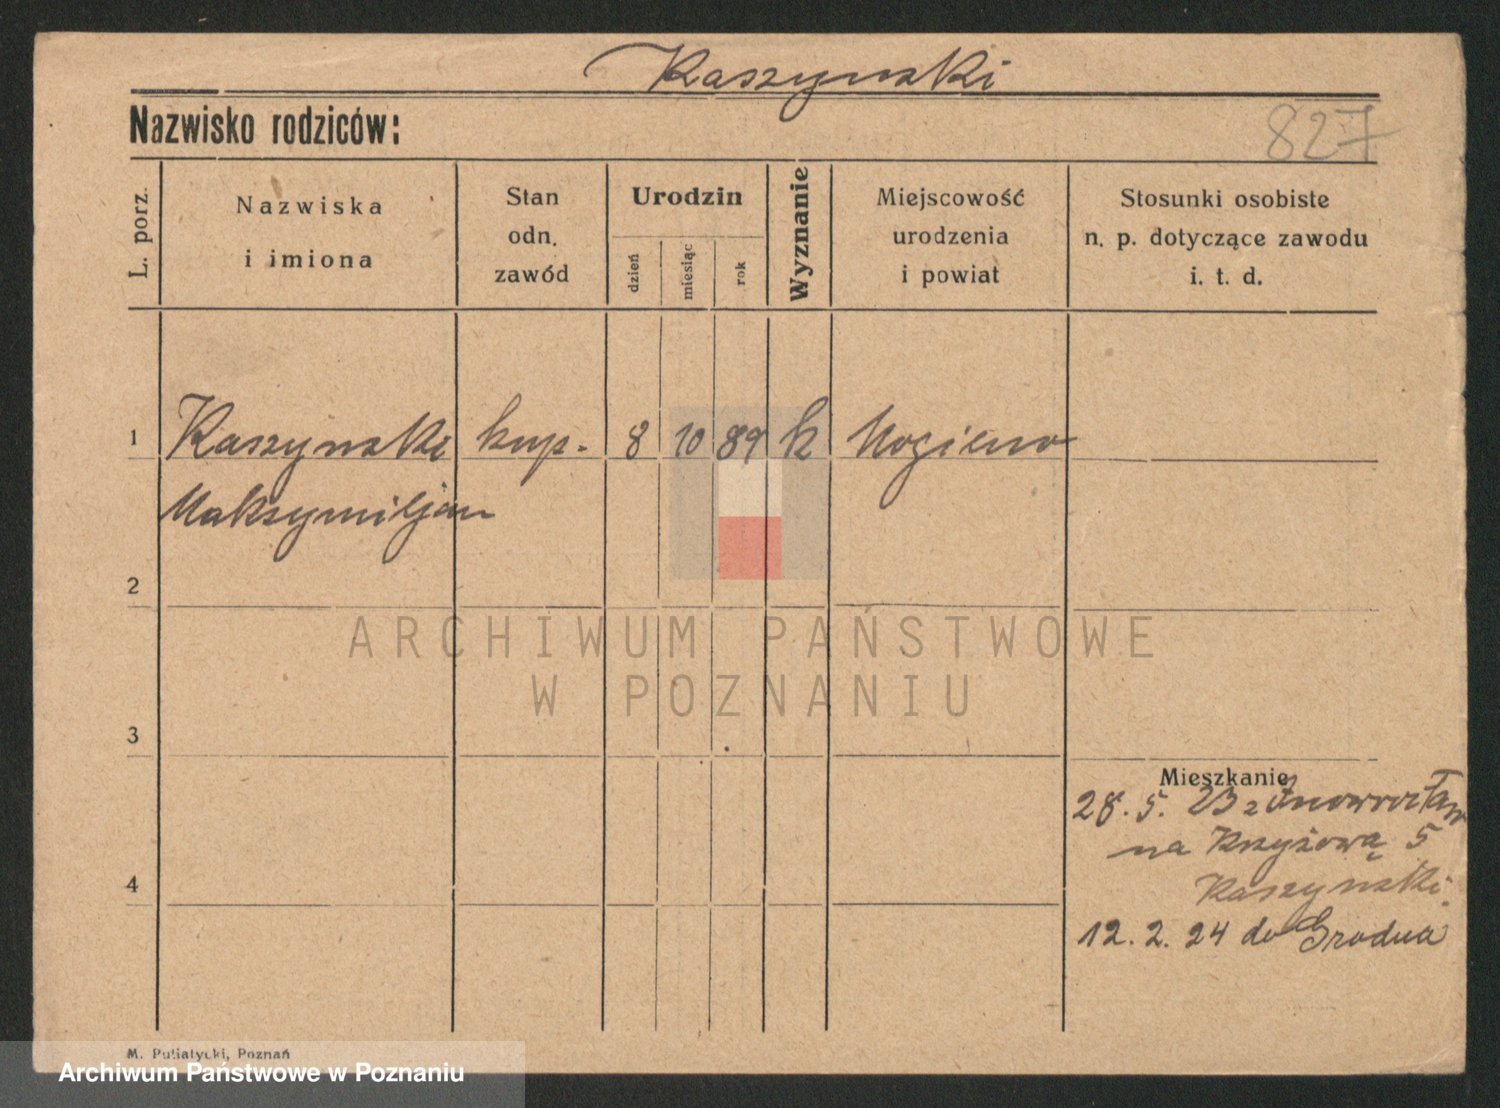 Kaszynski
Nazwisko rodziców:
827
L. porz.
Nazwiska
i imiona
Stan
odn.
zawód
Urodzin
dzień
miesiąc
rok
Wyznanie
Miejscowość
urodzenia
i powiat
Stosunki osobiste
n. p. dotyczące zawodu
i. t. d.
1 Kaszynski kup. 8 10 89 k Mogilno
Maksymiljan
2
ARCHIWUM PAŃSTWOWE
W POZNANIU
3
Mieszkanie
28. 5. 23 z Inowrocław
na Krzyżową 5
Kaszyński
4
12. 2. 24 do Grodna
M. Puliatycki, Poznań
Archiwum Państwowe w Poznaniu